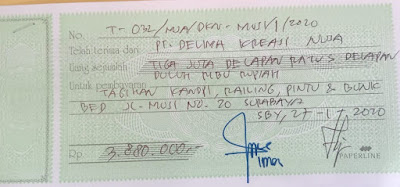 No. T-032/MJA/DKN-MUSI/1/2020
Telah terima dari PT. DELIMA KREASI NUSA
Uang sejumlah TIGA JUTA DELAPAN RATUS DELAPAN
PULUH RIBU RUPIAH
Untuk pembayaran TAGIHAN KANOPI, RAILING, PINTU &
BED JL. MUSI NO. 20 SURABAYA
SBY, 27-1-2020
Rp 3.880.000,-
PAPERLINE